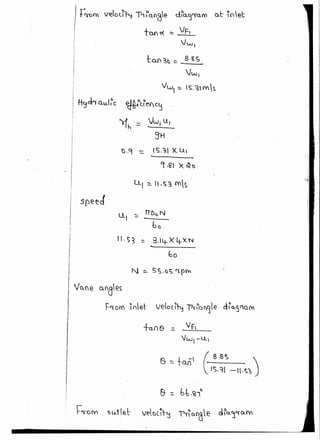 From velocity Triangle diagram at inlet
tan α = VF₁
Vw₁
tan 30 = 8.85
Vw₁
Vw₁ = 15.31 m/s
Hydraulic efficiency
ηh = Vw₁ u₁
gH
0.9 = 15.31 x u₁
9.81 x 20
u₁ = 11.53 m/s
speed
u₁ = πD₀N
60
11.53 = 3.14 x 4 x N
60
N = 55.05 rpm
Vane angles
From inlet velocity Triangle diagram
tan θ = VF₁
Vw₁ - u₁
θ = tan⁻¹ ( 8.85
15.31 - 11.53 )
θ = 66.87°
From outlet velocity Triangle diagram